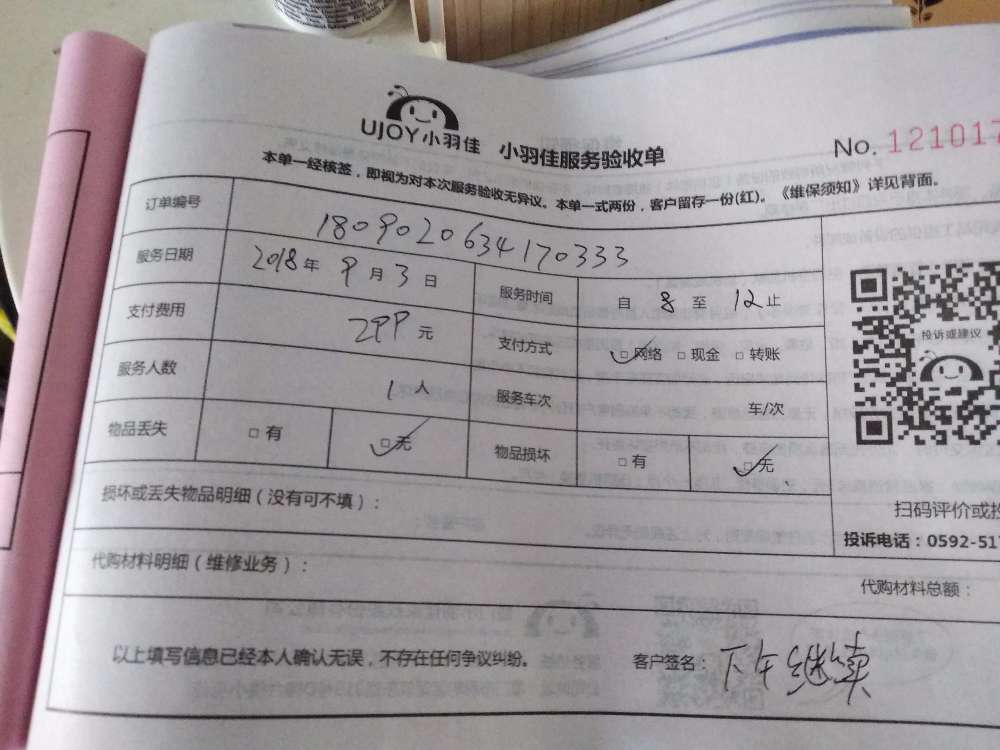 UJOY小羽佳 小羽佳服务验收单 No. 121017
本单一经核签，即视为对本次服务验收无异议。本单一式两份，客户留存一份(红)。《维保须知》详见背面。
订单编号 180902063417033​3
服务日期 2018年9月3日 服务时间 自8至12止
支付费用 299元 支付方式 □网络 □现金 □转账
服务人数 1人 服务车次 车/次
物品丢失 □有 □无 物品损坏 □有 □无
投诉或建议
损坏或丢失物品明细（没有可不填）：
扫码评价或投
投诉电话：0592-517
代购材料明细（维修业务）：
代购材料总额：
以上填写信息已经本人确认无误，不存在任何争议纠纷。 客户签名：下午继续